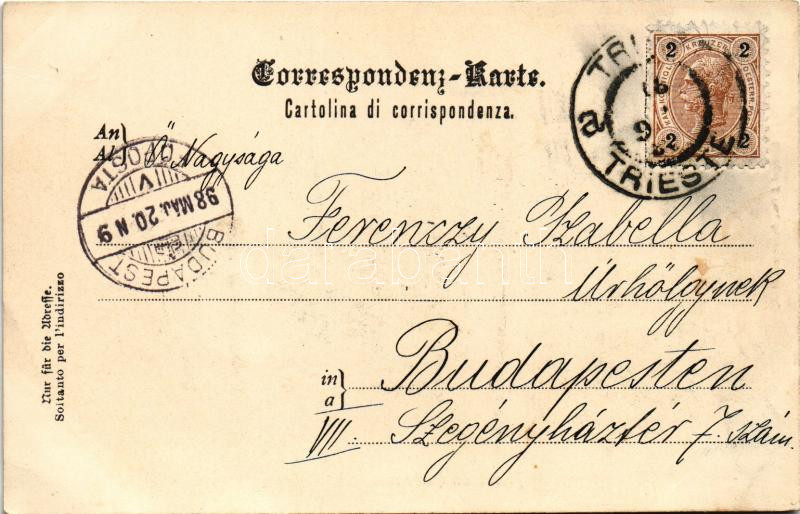 Correspondenz-Karte.
Cartolina di corrispondenza.
An
Al
Ő Nagysága
Ferenczy Izabella
Úrhölgynek
in
a
Budapesten
VII. Szegényháztér 7. szám.
Nur für die Adresse.
Soltanto per l'indirizzo
TRIESTE
a
2 KREUZER 2
2 2
BUDAPEST
98 MÁJ. 20. N 9
V
darabanth